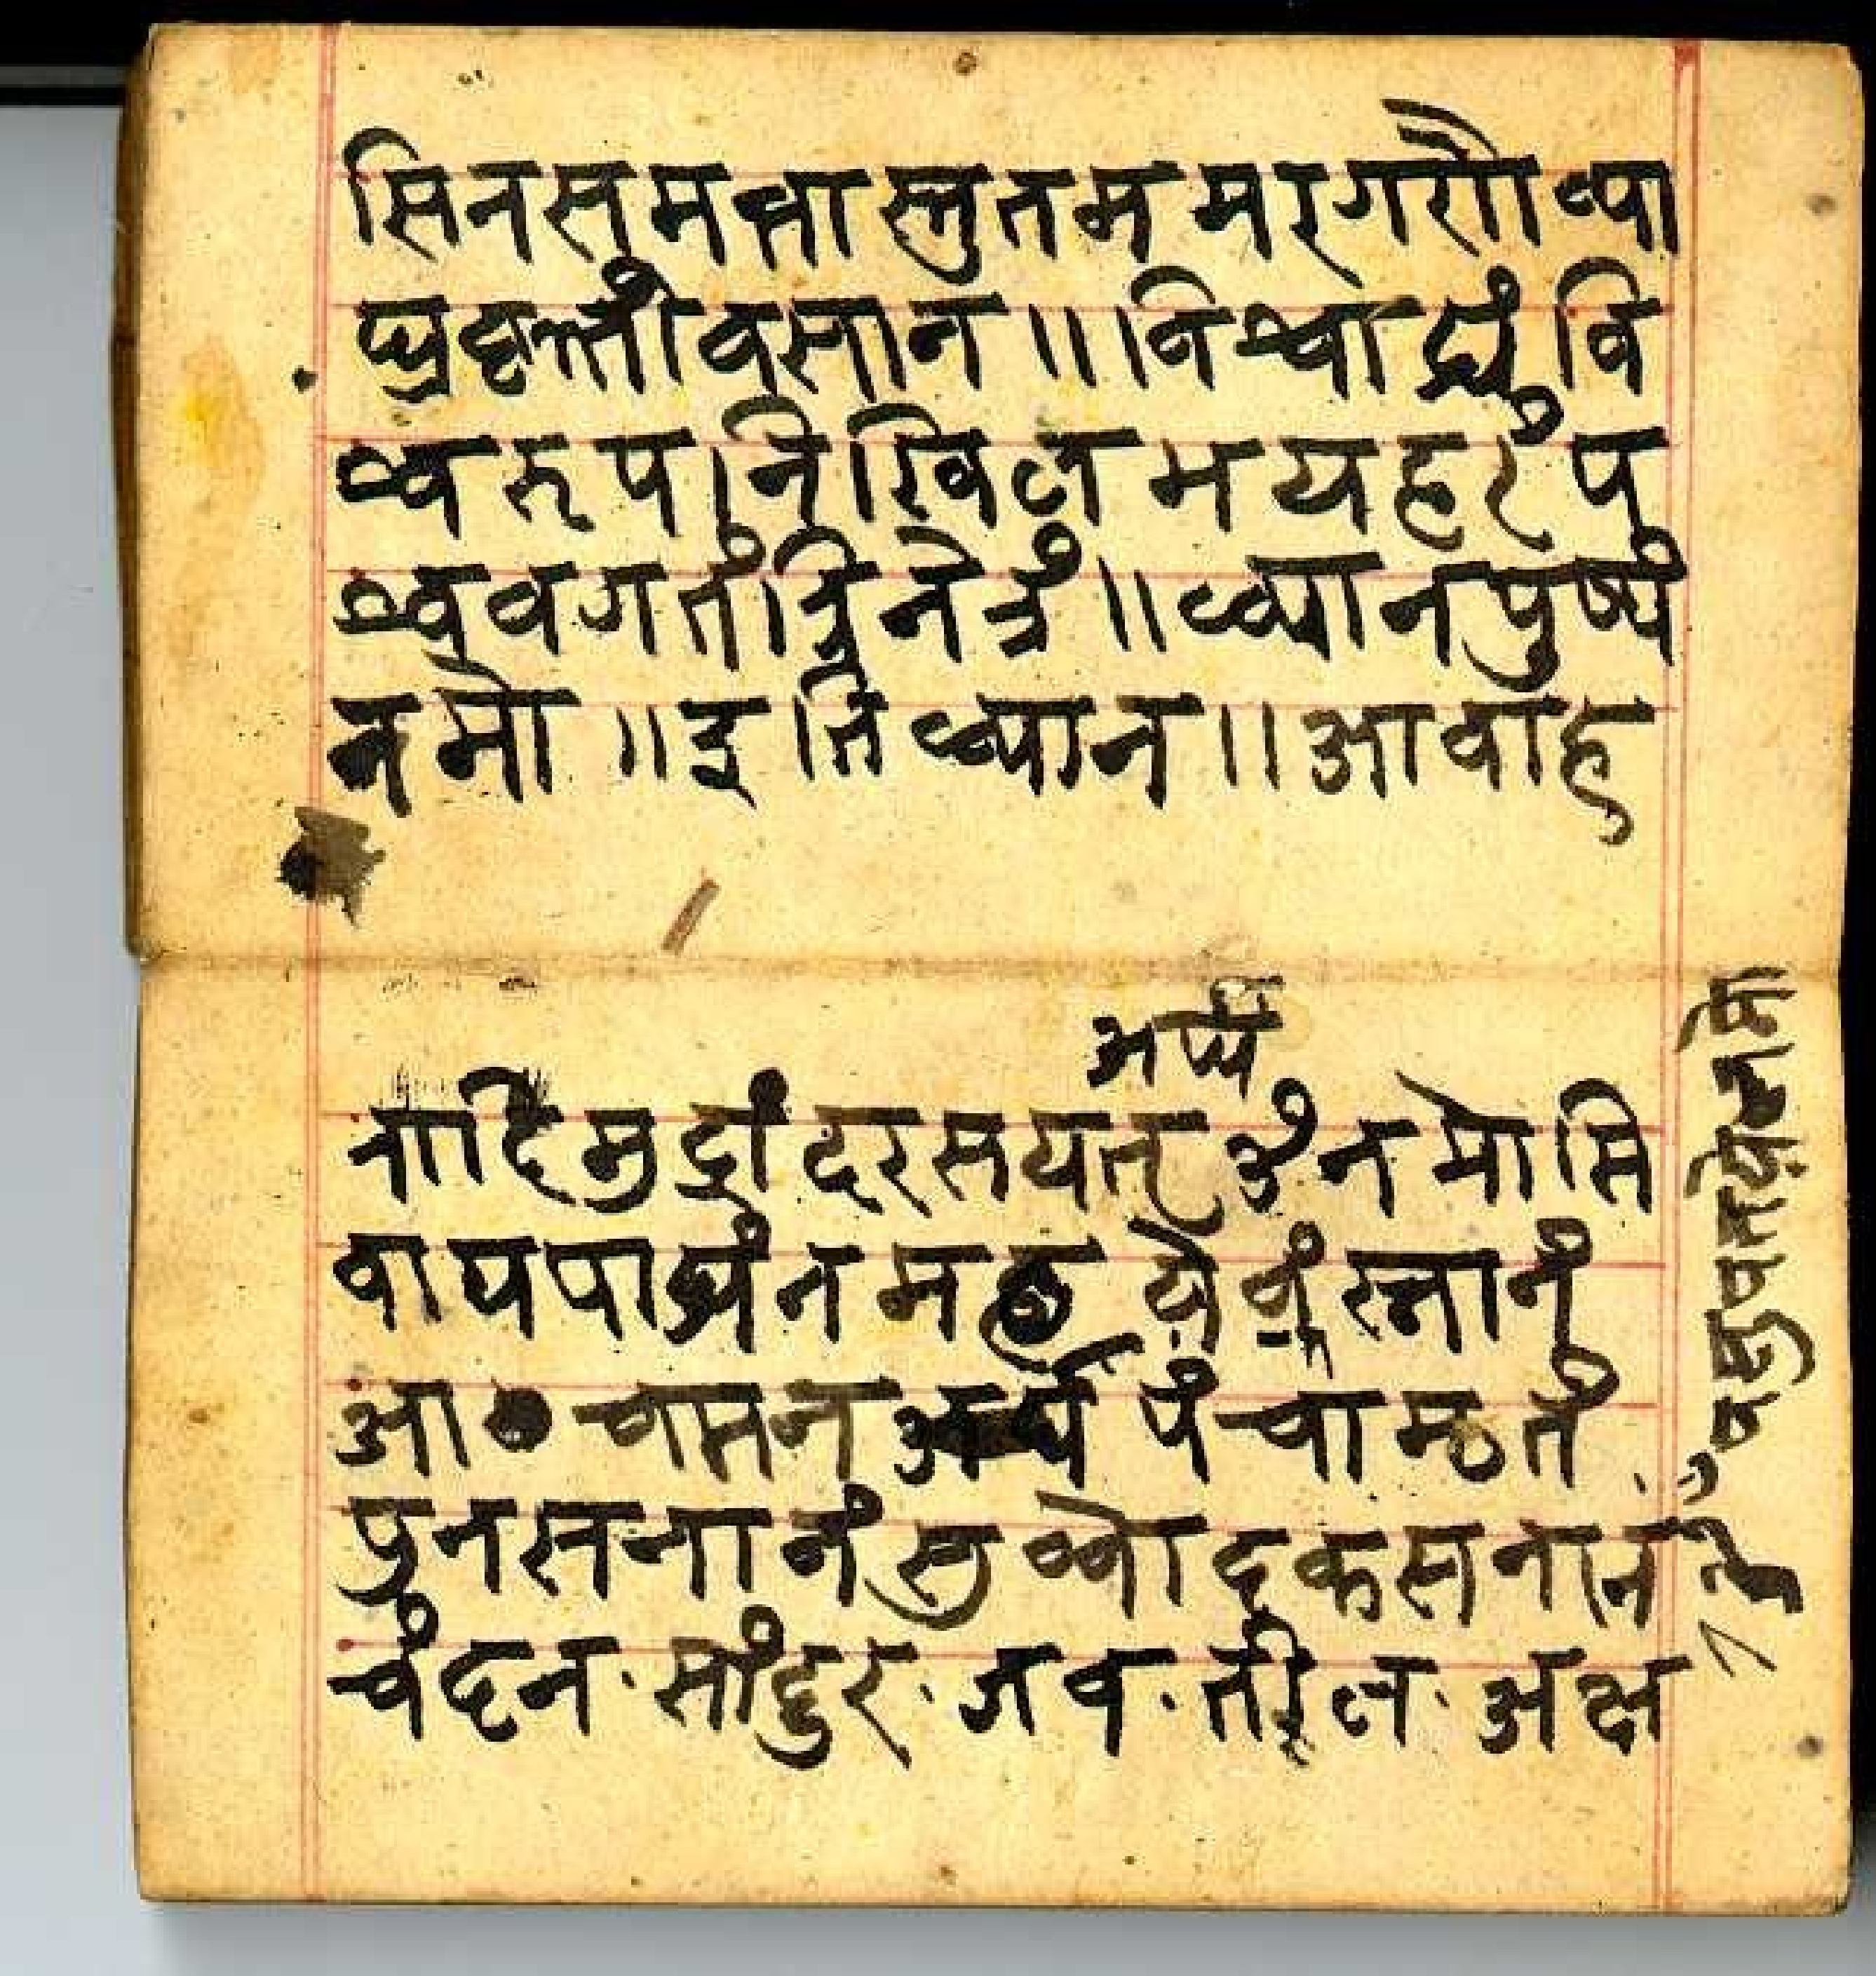 सिनसूमन्तास्तुतममरगरौाव्या
घ्रवृर्त्तीवसान॥विश्वाद्यंवि
श्वरुप।निखिलभयहरंप
श्ववगतंत्रिनेत्रं॥ध्यानपुष्पं
नमो॥इतिध्यान॥आवाह
अर्घ्य
नादिमुद्रांदरसयत्ॐनमोसि
वायपाद्यंनम स्नानं
आचमनअर्घ्यपंचामृतं
पुनसनानंसुध्वोदकसनान
चंदन·सींदुर·जव·तील·अक्ष